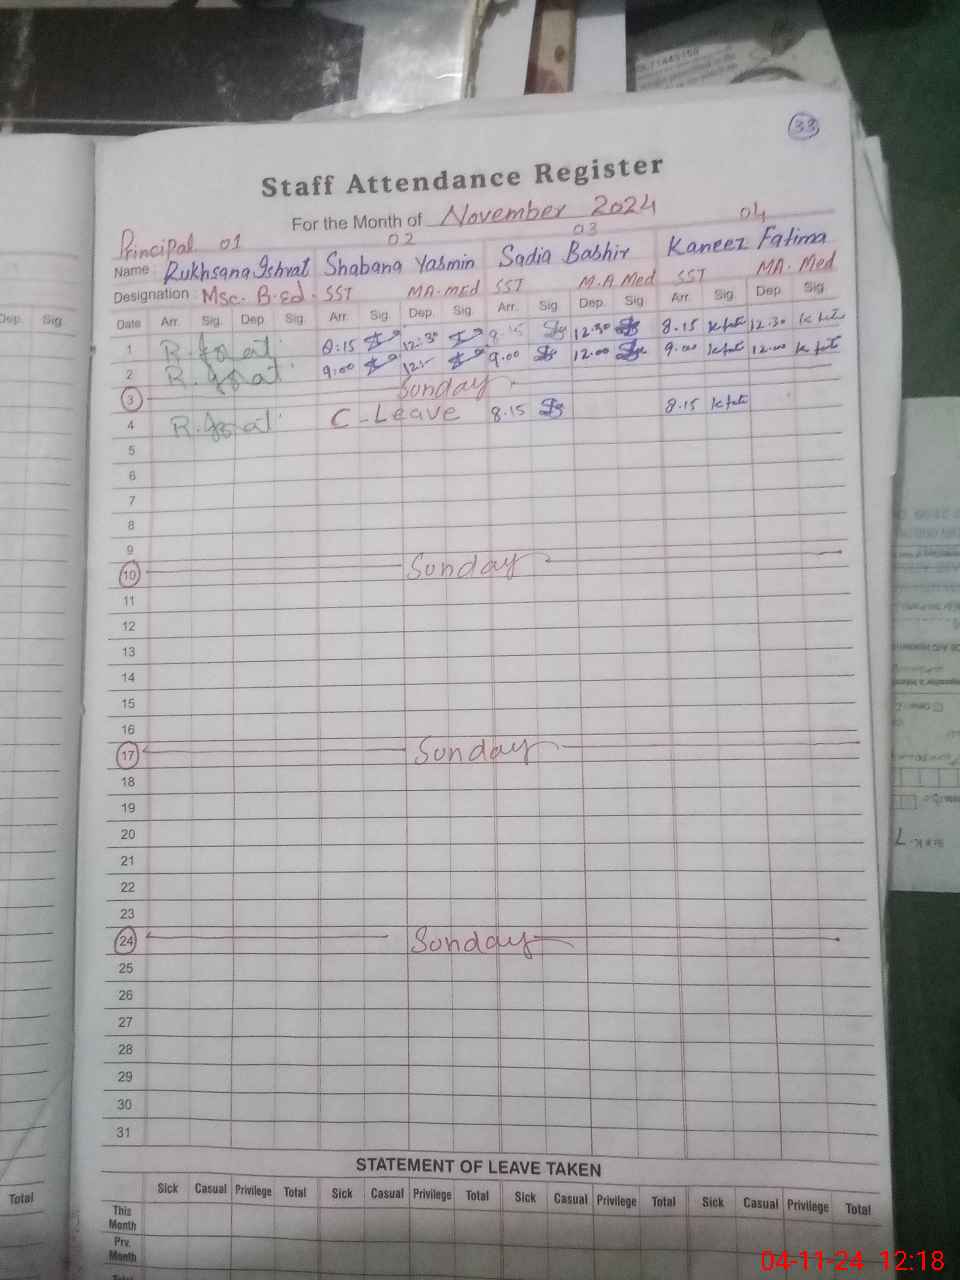 33
Staff Attendance Register
For the Month of November 2024
Principal 01 02 03 04
Name : Rukhsana Ishrat Shabana Yasmin Sadia Bashir Kaneez Fatima
Designation : Msc. B.Ed. SST MA.Med SST M.A Med SST MA. Med
Dep. Sig
Date Arr. Sig. Dep. Sig. Arr. Sig. Dep. Sig. Arr. Sig. Dep. Sig. Arr. Sig. Dep. Sig.
1 8:15 12:30 8.15 12.30 8.15 12.30
2 9:00 9.00 12.00 9.00 12.00
3 Sunday
4 C-Leave 8.15 8.15
5
6
7
8
9
10 Sunday
11
12
13
14
15
16
17 Sunday
18
19
20
21
22
23
24 Sunday
25
26
27
28
29
30
31
STATEMENT OF LEAVE TAKEN
Sick Casual Privilege Total Sick Casual Privilege Total Sick Casual Privilege Total Sick Casual Privilege Total
Total
This
Month
Prv.
Month
Total
04-11-24 12:18